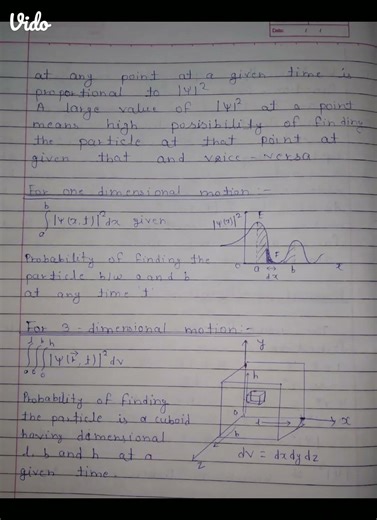 Vido
Date: / /
at any point at a given time is
proportional to |Ψ|²
A large value of |Ψ|² at a point
means high posisibility of finding
the particle at that point at
given that and voice-versa
For one dimensional motion:-
b
∫|Ψ(x,t)|²dx given
a
|Ψ(x)|²
0 a b x
dx
Probability of finding the
particle b/w a and b
at any time t
For 3-dimensional motion:-
l b h
∫∫∫|Ψ(r⃗,t)|²dv
0 0 0
y
h
Probability of finding
the particle is a cuboid
having demensional
l, b and h at a
given time.
0 l x
b
z
dV = dxdydz